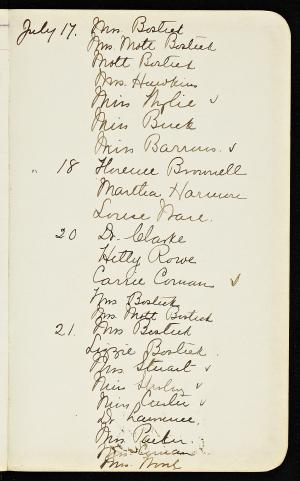 July 17. Mrs. Bostick
Mrs. Mott Bostick
Mott Bostick
Mrs. Hawkins
Miss Wylie ✓
Miss Buck
Miss Barrows ✓
" 18 Florence Brownell
Martha Harmore
Louise Ware.
20 Dr. Clarke
Hetty Rowe
Carrie Coman ✓
Mrs Bostick
Mrs. Mott Bostick
21. Mrs Bostick
Lizzie Bostick.
Mrs. Stuart ✓
Miss ✓
Miss ✓
Dr. Lawrence.
Mrs. Parker.
Coman
Mrs.